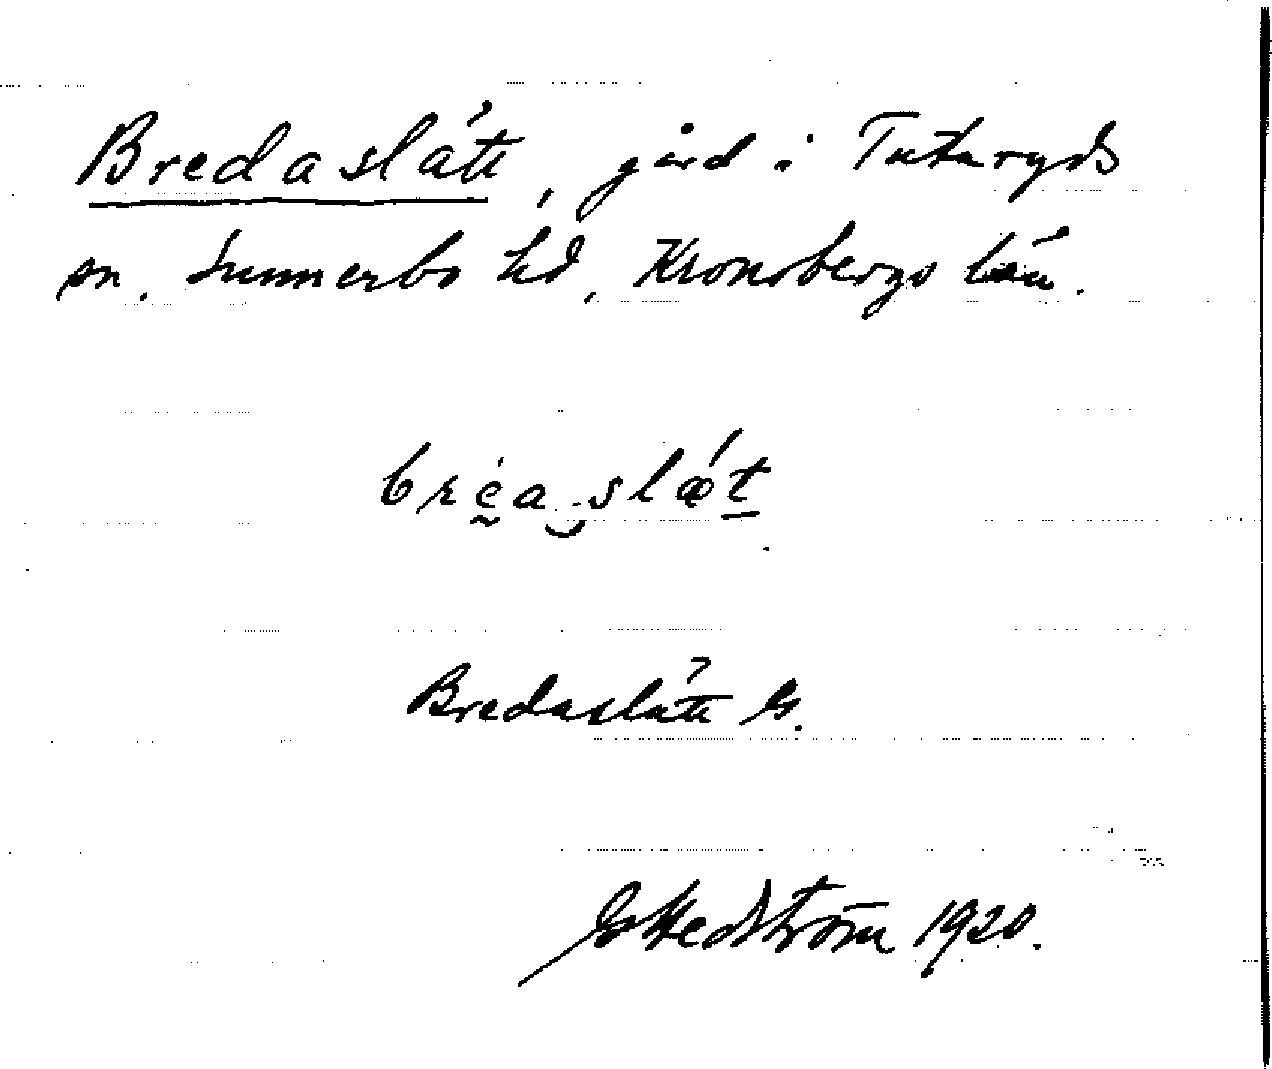 Bredaslätt, gård i Tutaryds
sn. Sunnerbo hd, Kronobergs län.
bréa slǽt
Bredaslätt G.
G Hedström 1920.